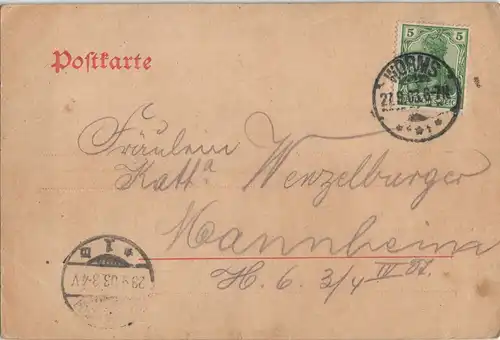 Postkarte
5 5
WORMS
27.9.03.6-7N
Fräulein
Kath.a Wenzelburger
Mannheim
H. 6. 3/4 IV St.
1
29.9.03.3-4V